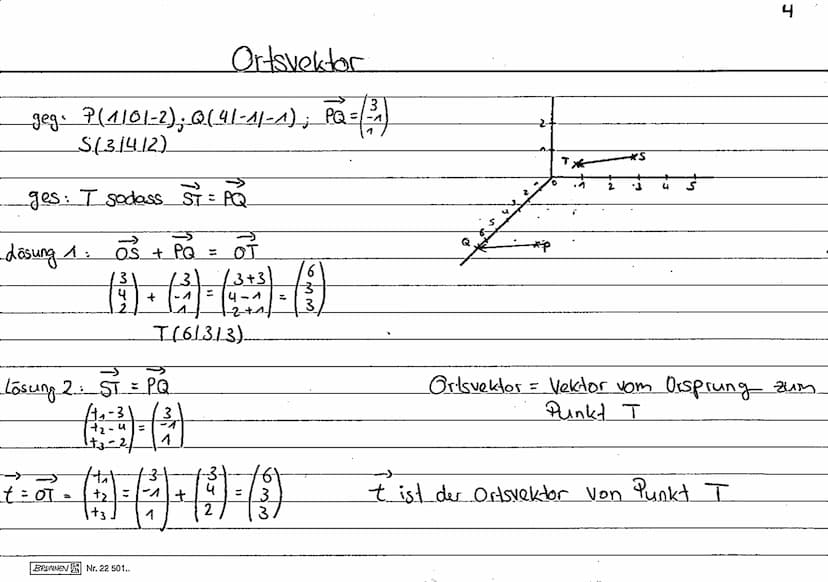 4
Ortsvektor
geg: P(1|0|-2); Q(4|-1|-1); →PQ = (3 -1 1)
S(3|4|2)
ges: T sodass →ST = →PQ
Lösung 1: →OS + →PQ = →OT
(3 4 2) + (3 -1 1) = (3+3 4-1 2+1) = (6 3 3)
T(6|3|3)
Lösung 2: →ST = →PQ
(t₁-3 t₂-4 t₃-2) = (3 -1 1)
→t = →OT = (t₁ t₂ t₃) = (3 -1 1) + (3 4 2) = (6 3 3)
2
1
T S
0 1 2 3 4 5
1 2 3 4 5 6
Q P
Ortsvektor = Vektor vom Ursprung zum
Punkt T
→t ist der Ortsvektor von Punkt T
BRUNNEN Nr. 22 501..